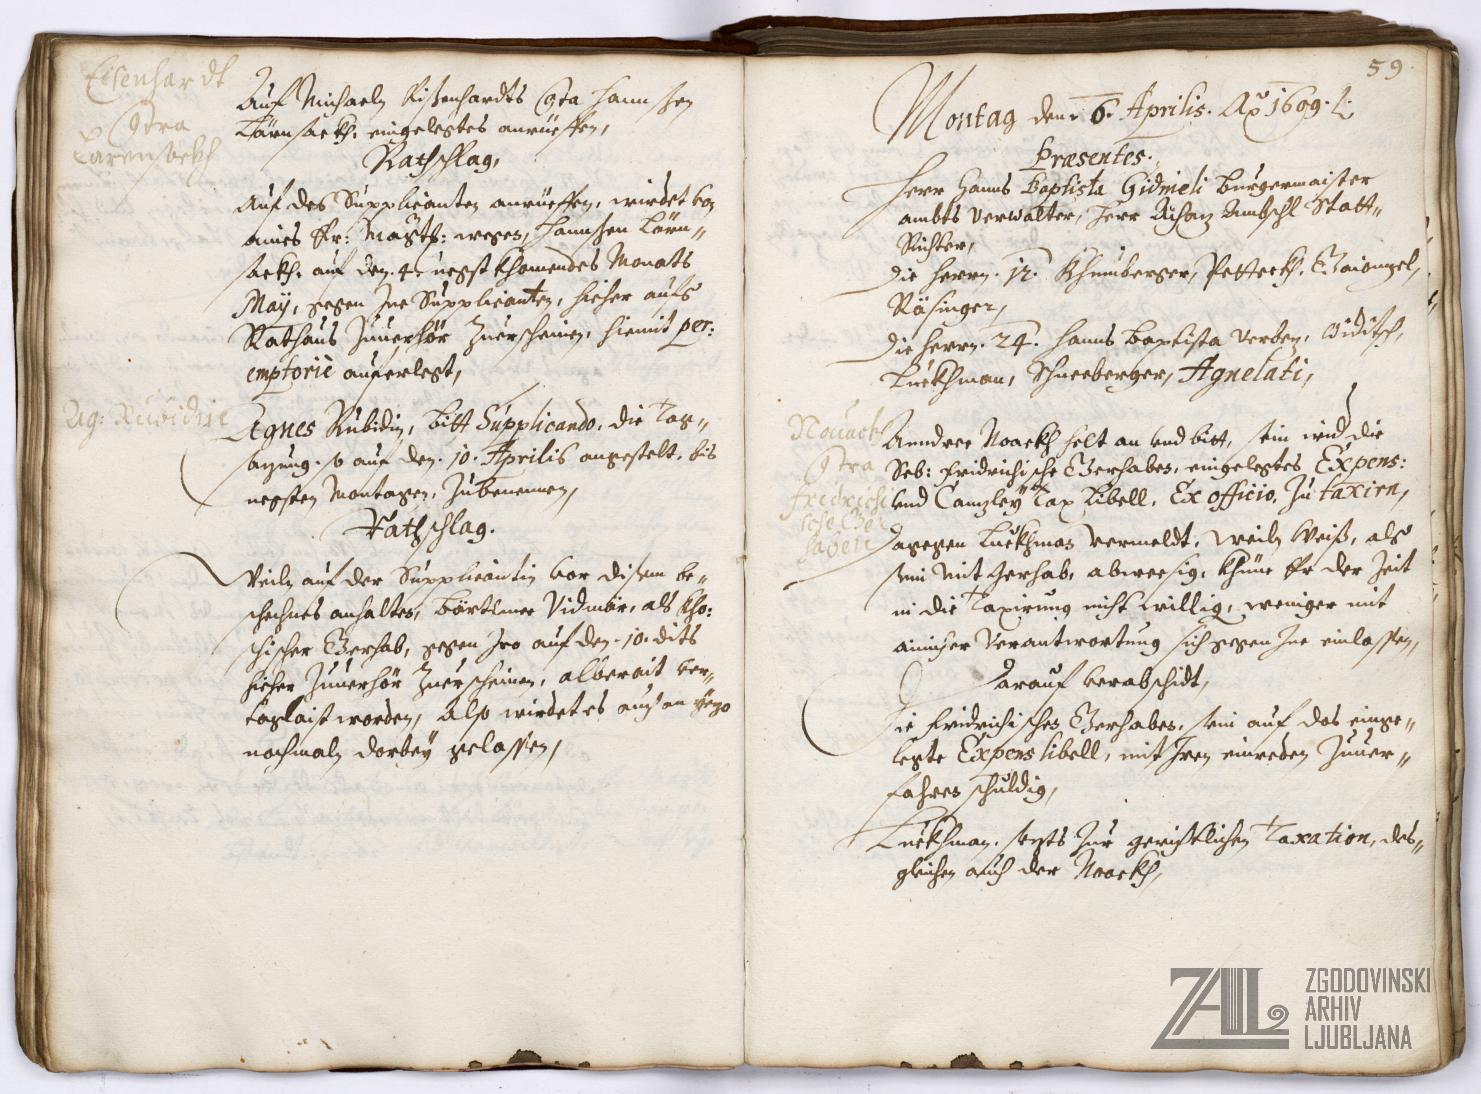 Eisenhardt
Contra
Lärensackh
Auf Michaeln Eisenhardts Contra Hannsen
Lärnsackh, eingelegtes anrüeffen,
Rathschlag,
Auf des Supplicanten anrüeffen, wirdet von
aines Er: Magts: wegen, Hannsen Lärn„
sackh, auf den .4. negstkhomendes Monats
Maÿ, gegen Jne Supplicanten, hieher aufs
Rathaus Zuuerhör Zuerscheinen, hiemit per:
emptoriè auferlegt,
Ag: Rubidin
Agnes Rubidin, bitt Supplicando, die Tag„
sazung, so auf den .10. Aprilis angestelt, bis
negsten Montagen, Zubenemen,
Rathschlag.
Weiln auf der Supplicantin vor disem be„
schechnes anhalten, Börtlmee Vidmär, als
schischer Gerhab, gegen Jro auf den .10. dits
hieher Zuuerhör Zuerscheinen, alberait ver„
taglaist worden, Also wirdet es auch an
nochmaln darbeÿ gelassen,
59.
Montag den .6. Aprilis. Ao 1609.
Præsentes.
Herr Hanns Baptista Gidmeli Burgermaister
ambts verwalter, Herr Ambschl Statt„
Richter,
Die Herrn .12. Khunberger, Petteckh,
Räsinger,
Die Herrn .24. Hanns Baptista Verben, Widitsch,
Luckhman, Schneeberger, Agnelati,
Nouackh
Contra
fridrichi
sche Ger
haben
Anndree Noackh helt an vnd bitt, sein wid die
Seb: fridrichische Gerhaben, eingelegtes Expens:
vnd Canzleÿ Tax Libell, Ex officio, Zu taxirn,
Dagegen Luckhman vermeldt, weiln Weiß, als
sein Mit Gerhab, abweesig, khüne Er der Zeit
in die Taxirung nicht willig, weniger mit
ainicher Verantwortung sich gegen Jne einlassen,
Darauf verabschidt,
Die Fridrichischen Gerhaben, sein auf das einge„
legte Expens libell, mit Jren einreden Zuuer„
fahren schuldig,
Luckhman, sezts Zur gerichtlichen Taxation, des„
gleichen auch der Noackh,
ZAL
ZGODOVINSKI
ARHIV
LJUBLJANA